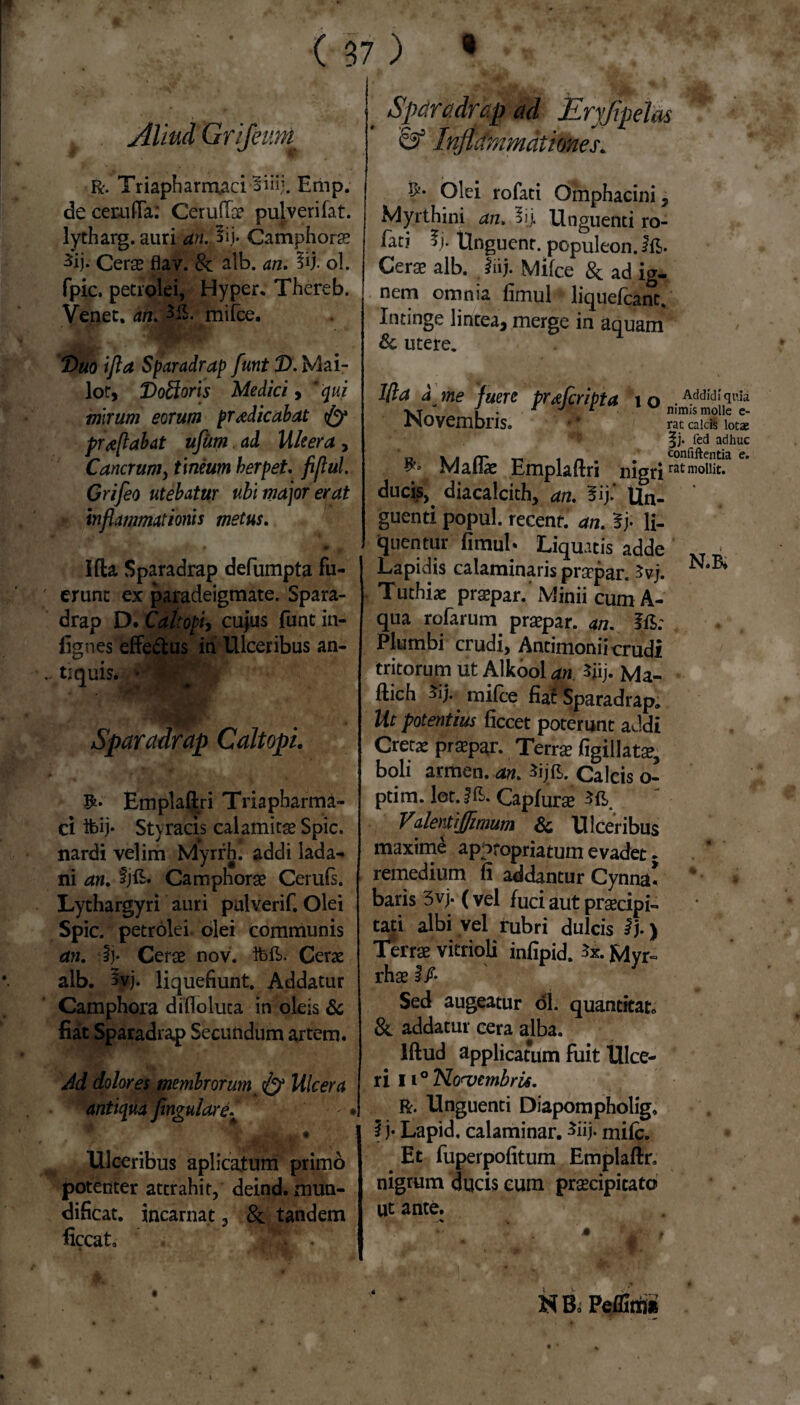 ( 37 )
Aliud Griſeum
℞. Triapharmaci ℥iiij. Emp.
de ceruſſa: Ceruſſæ pulveriſat.
lytharg. auri an. ℥ij. Camphoræ
ʒij. Ceræ flav. & alb. an. ℥ij. ol.
ſpic. petrolei, Hyper. Thereb.
Venet. an. ʒß. miſce.
Duo iſta Sparadrap ſunt D. Mai-
lot, Doctoris Medici, qui
mirum eorum prædicabat &
præſtabat uſum ad Ulcera,
Cancrum, tineum herpet. fiſtul.
Griſeo utebatur ubi major erat
inflammationis metus.
Iſta Sparadrap deſumpta fu-
erunt ex paradeigmate. Spara-
drap D. Caltopi, cujus ſunt in-
ſignes effectus in Ulceribus an-
tiquis.
Sparadrap Caltopi.
℞. Emplaſtri Triapharma-
ci ℔ij. Styracis calamitæ Spic.
nardi velim Myrrh. addi lada-
ni an. ℥jß. Camphoræ Ceruſs.
Lythargyri auri pulveriſ. Olei
Spic. petrolei olei communis
an. ℥j. Ceræ nov. ℔ß. Ceræ
alb. ℥vj. liquefiunt. Addatur
Camphora diſſoluta in oleis &
fiat Sparadrap Secundum artem.
Ad dolores membrorum & Ulcera
antiqua ſingulare.
Ulceribus aplicatum primò
potenter attrahit, deind. mun-
dificat. incarnat, & tandem
ſiccat.
Sparadrap ad Eryſipelas
& Inflammationes.
℞. Olei roſati Omphacini,
Myrthini an. ℥ij. Unguenti ro-
ſati ℥j. Unguent. populeon. ℥ß.
Ceræ alb. ℥iij. Miſce & ad ig-
nem omnia ſimul liqueſcant.
Intinge lintea, merge in aquam
& utere.
Iſta à me fuere præſcripta 10
Novembris.
Addidi quia
nimis molle e-
rat calcis lotæ
℥j. ſed adhuc
conſiſtentia e.
rat mollit.
℞. Maſſæ Emplaſtri nigri
ducis, diacalcith, an. ℥ij. Un-
guenti popul. recent. an. ℥j. li-
quentur ſimul. Liquatis adde
Lapidis calaminaris præpar. ʒvj.
N.B.
Tuthiæ præpar. Minii cum A-
qua roſarum præpar. an. ℥ß.
Plumbi crudi, Antimonii crudi
tritorum ut Alkool an. ʒiij. Ma-
ſtich ʒij. miſce fiat Sparadrap.
Ut potentius ſiccet poterunt addi
Cretæ præpar. Terræ ſigillatæ,
boli armen. an. ʒijß. Calcis o-
ptim. lot. ℥ß. Capſuræ ʒß.
Valentiſſimum & Ulceribus
maximè appropriatum evadet;
remedium ſi addantur Cynna-
baris ʒvj. (vel ſuci aut præcipi-
tati albi vel rubri dulcis ℥j.)
Terræ vitrioli inſipid. ʒx. Myr-
rhæ ℥ß.
Sed augeatur ol. quantitat.
& addatur cera alba.
Iſtud applicatum fuit Ulce-
ri 11° Novembris.
℞. Unguenti Diapompholig.
℥j. Lapid. calaminar. ʒiij. miſc.
Et ſuperpoſitum Emplaſtr.
nigrum ducis cum præcipitato
ut ante.
NB. Peſſima